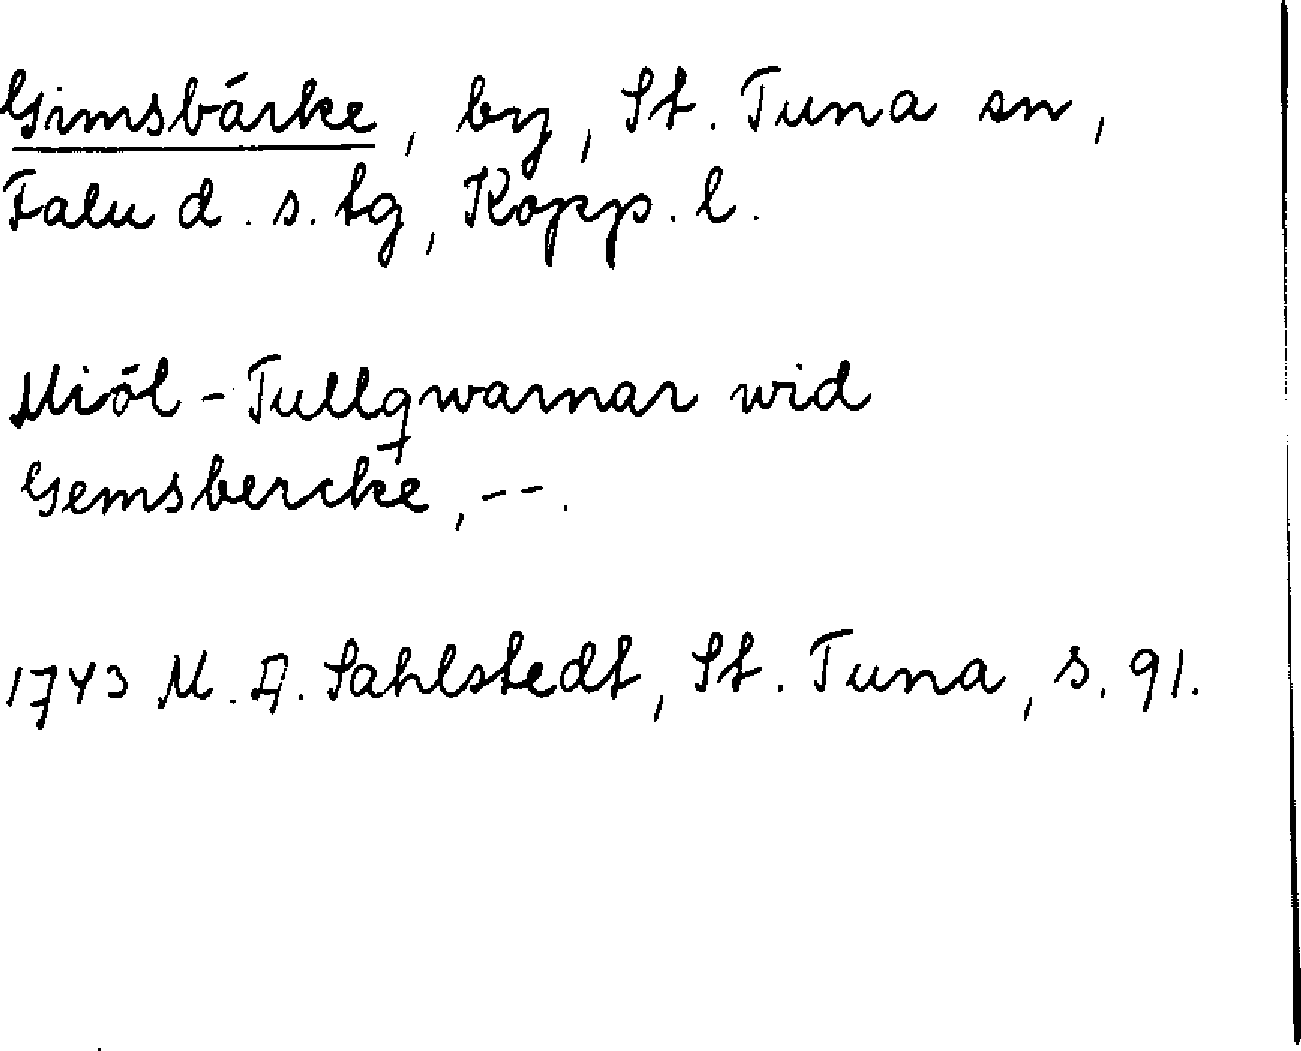 Gimsbärke, by, St. Tuna sn,
Falu d. s. tg, Kopp. l.
Miöl-Tullqwarnar wid
Gemsbercke, --.
1743 M. A. Sahlstedt, St. Tuna, s. 91.